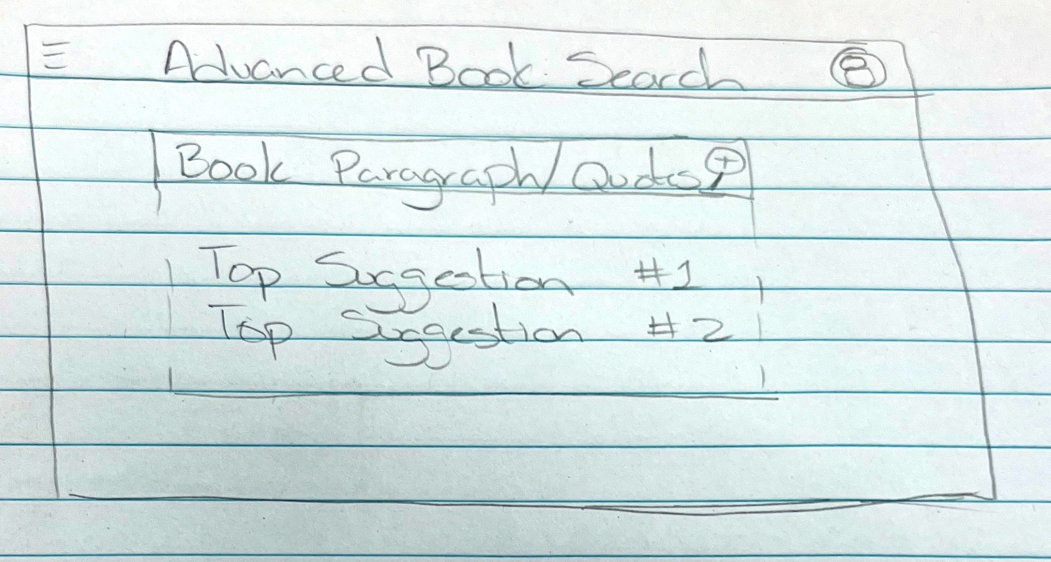 Advanced Book Search
Book Paragraph/Quotes
Top Suggestion #1
Top Suggestion #2